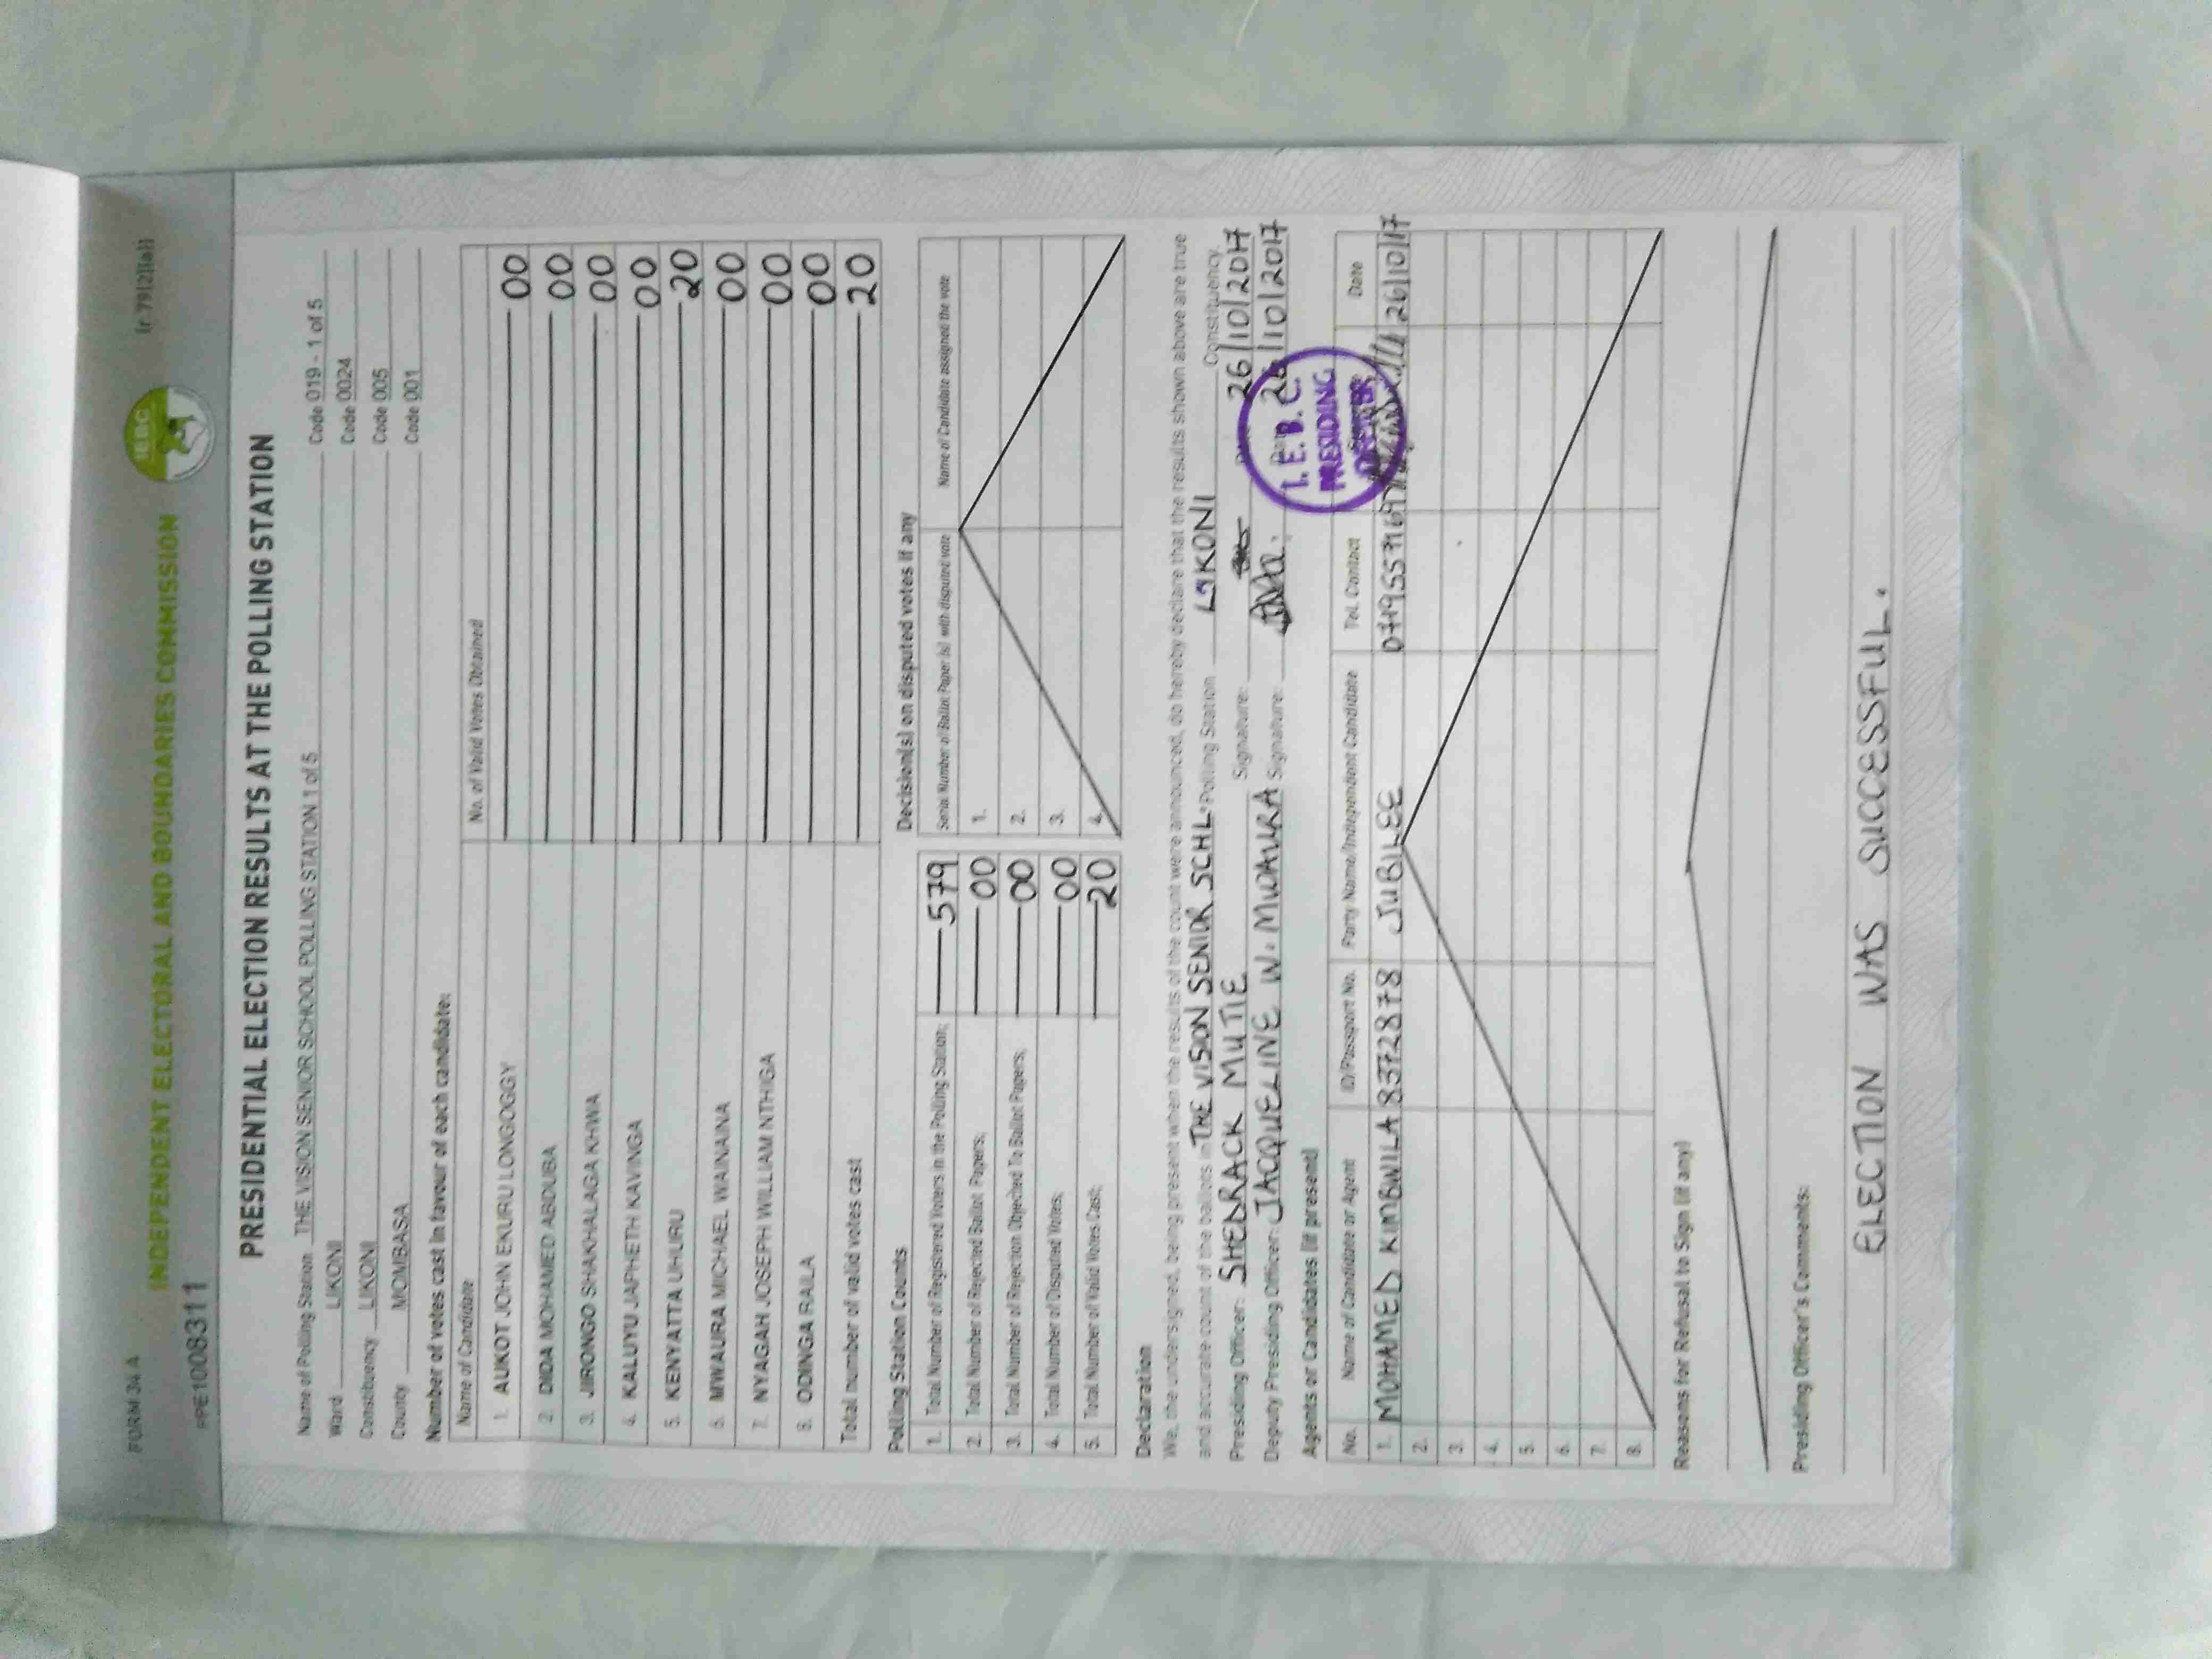 FORM 34 A
INDEPENDENT ELECTORAL AND BOUNDARIES COMMISSION
IEBC
(r 79(2)(a))
#PE1008311
PRESIDENTIAL ELECTION RESULTS AT THE POLLING STATION
Name of Polling Station THE VISION SENIOR SCHOOL POLLING STATION 1 of 5 Code 019 - 1 of 5
Ward LIKONI Code 0024
Constituency LIKONI Code 005
County MOMBASA Code 001
Number of votes cast in favour of each candidate:
Name of Candidate No. of Valid Votes Obtained
1. AUKOT JOHN EKURU LONGOGGY 00
2. DIDA MOHAMED ABDUBA 00
3. JIRONGO SHAKHALAGA KHWA 00
4. KALUYU JAPHETH KAVINGA 00
5. KENYATTA UHURU 20
6. MWAURA MICHAEL WAINAINA 00
7. NYAGAH JOSEPH WILLIAM NTHIGA 00
8. ODINGA RAILA 00
Total number of valid votes cast 20
Polling Station Counts
1. Total Number of Registered Voters in the Polling Station; 579
2. Total Number of Rejected Ballot Papers; 00
3. Total Number of Rejection Objected To Ballot Papers; 00
4. Total Number of Disputed Votes; 00
5. Total Number of Valid Votes Cast; 20
Decision(s) on disputed votes if any
Serial Number of Ballot Paper (s) with disputed vote Name of Candidate assigned the vote
1.
2.
3.
4.
Declaration
We, the undersigned, being present when the results of the count were announced, do hereby declare that the results shown above are true
and accurate count of the ballots in THE VISION SENIOR SCHL. Polling Station LIKONI Constituency.
Presiding Officer: SHEDRACK MUTIE Signature: Date 26/10/2017
Deputy Presiding Officer: JACQUELINE W. MWAURA Signature: 26/10/2017
I.E.B.C.
PRESIDING
OFFICER
Agents or Candidates (if present)
No. Name of Candidate or Agent ID/Passport No. Party Name/Independent Candidate Tel. Contact Date
1. MOHAMED KIMBWILA 8372878 JUBILEE 26/10/17
2.
3.
4.
5.
6.
7.
8.
Reasons for Refusal to Sign (if any)
Presiding Officer's Comments:
ELECTION WAS SUCCESSFUL.